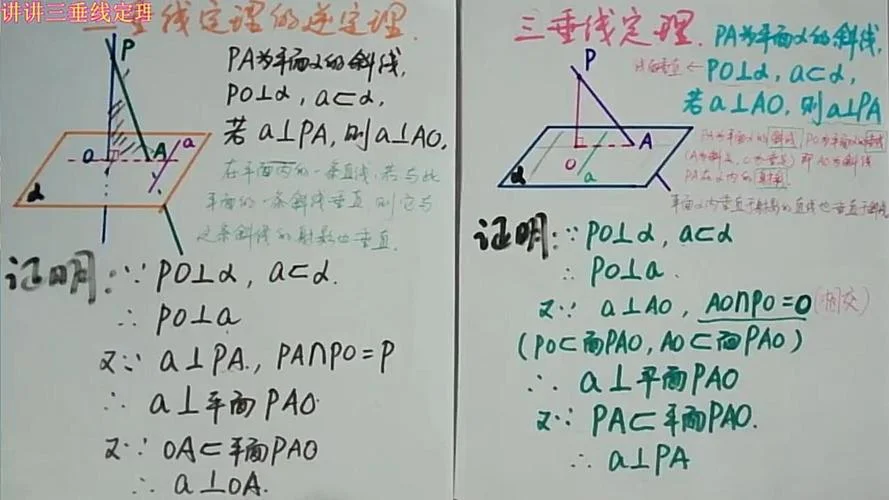 讲讲三垂线定理
三垂线定理的逆定理.
P
PA为平面α的斜线,
PO⊥α, a⊂α,
若a⊥PA, 则a⊥AO,
a
o
A
α
在平面内的一条直线,若与此
平面的一条斜线垂直,则它与
这条斜线的射影也垂直.
证明:∵PO⊥α, a⊂α.
∴PO⊥a
又∵a⊥PA, PA∩PO=P
∴a⊥平面PAO
又∵OA⊂平面PAO
∴a⊥OA.
三垂线定理.
PA为平面α的斜线,
P
PO⊥α, a⊂α,
若a⊥AO, 则a⊥PA
A
o
a
α
PA为平面α的斜线
PA在α内的射影
平面α内垂直于射影的直线也垂直于斜线
证明:∵PO⊥α, a⊂α
∴PO⊥a.
又∵a⊥AO, AO∩PO=O(相交)
(PO⊂面PAO, AO⊂面PAO)
∴a⊥平面PAO
又∵PA⊂平面PAO.
∴a⊥PA